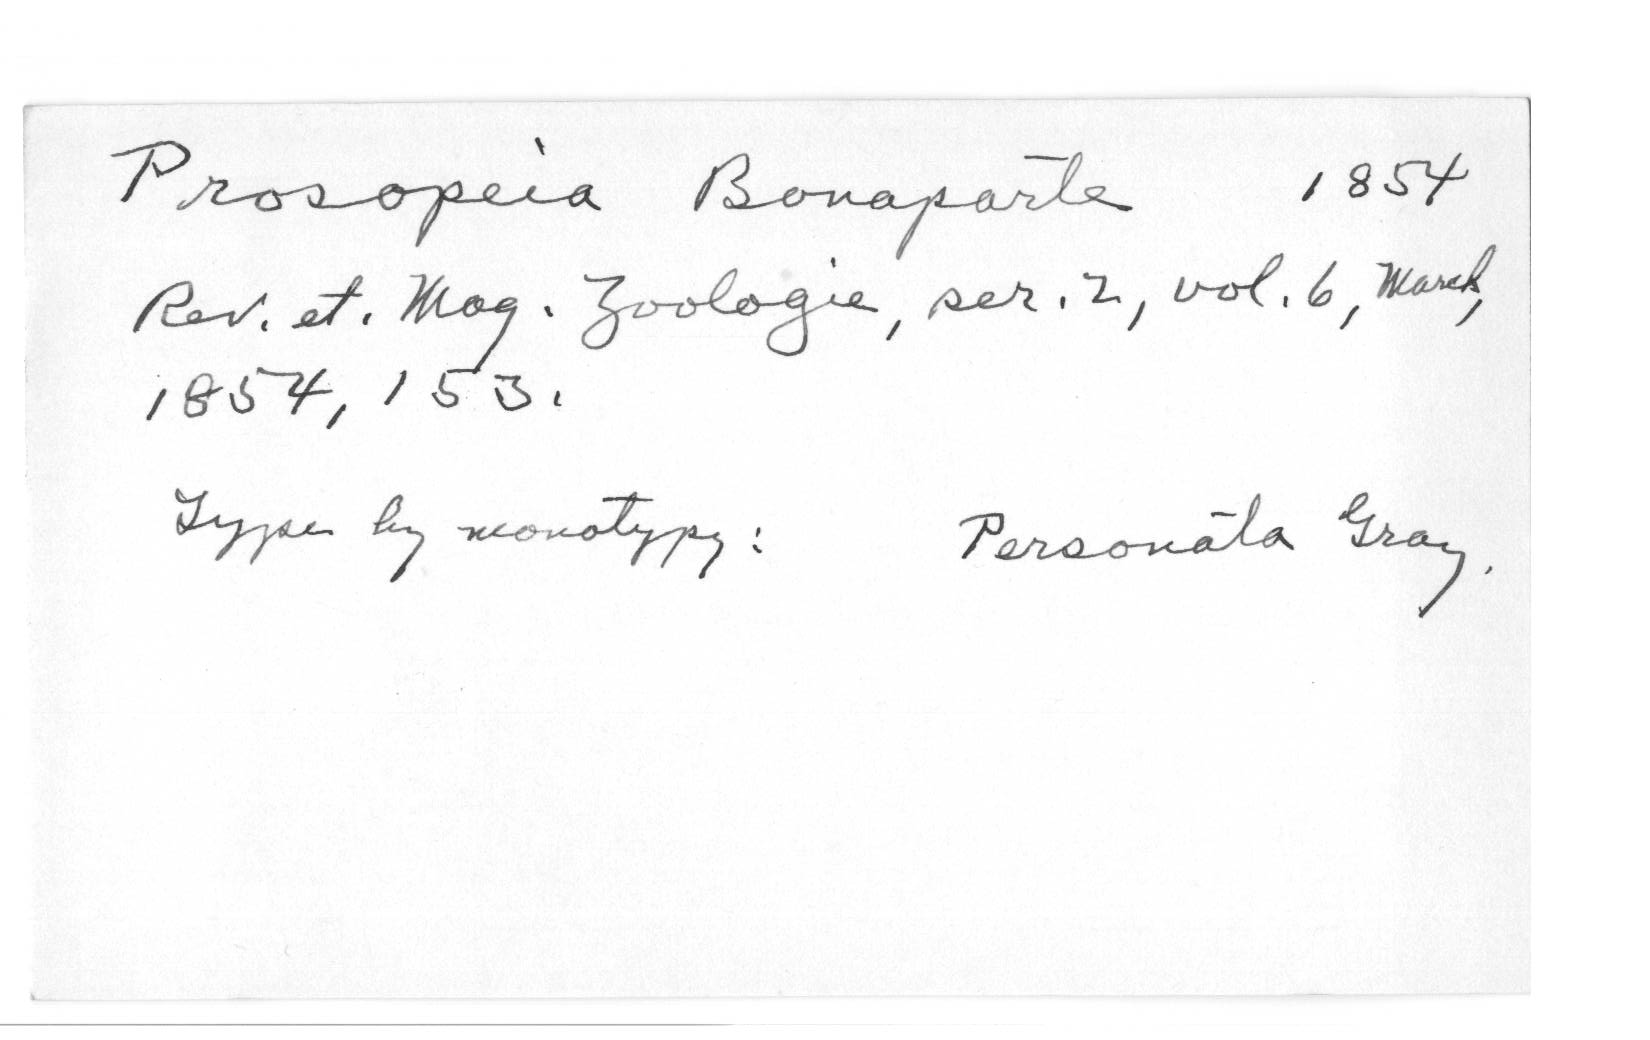 Prosopeia Bonaparte 1854
Rev. et. Mag. Zoologie, ser. 2, vol. 6, March,
1854, 153.
Type by monotypy: Personata Gray.